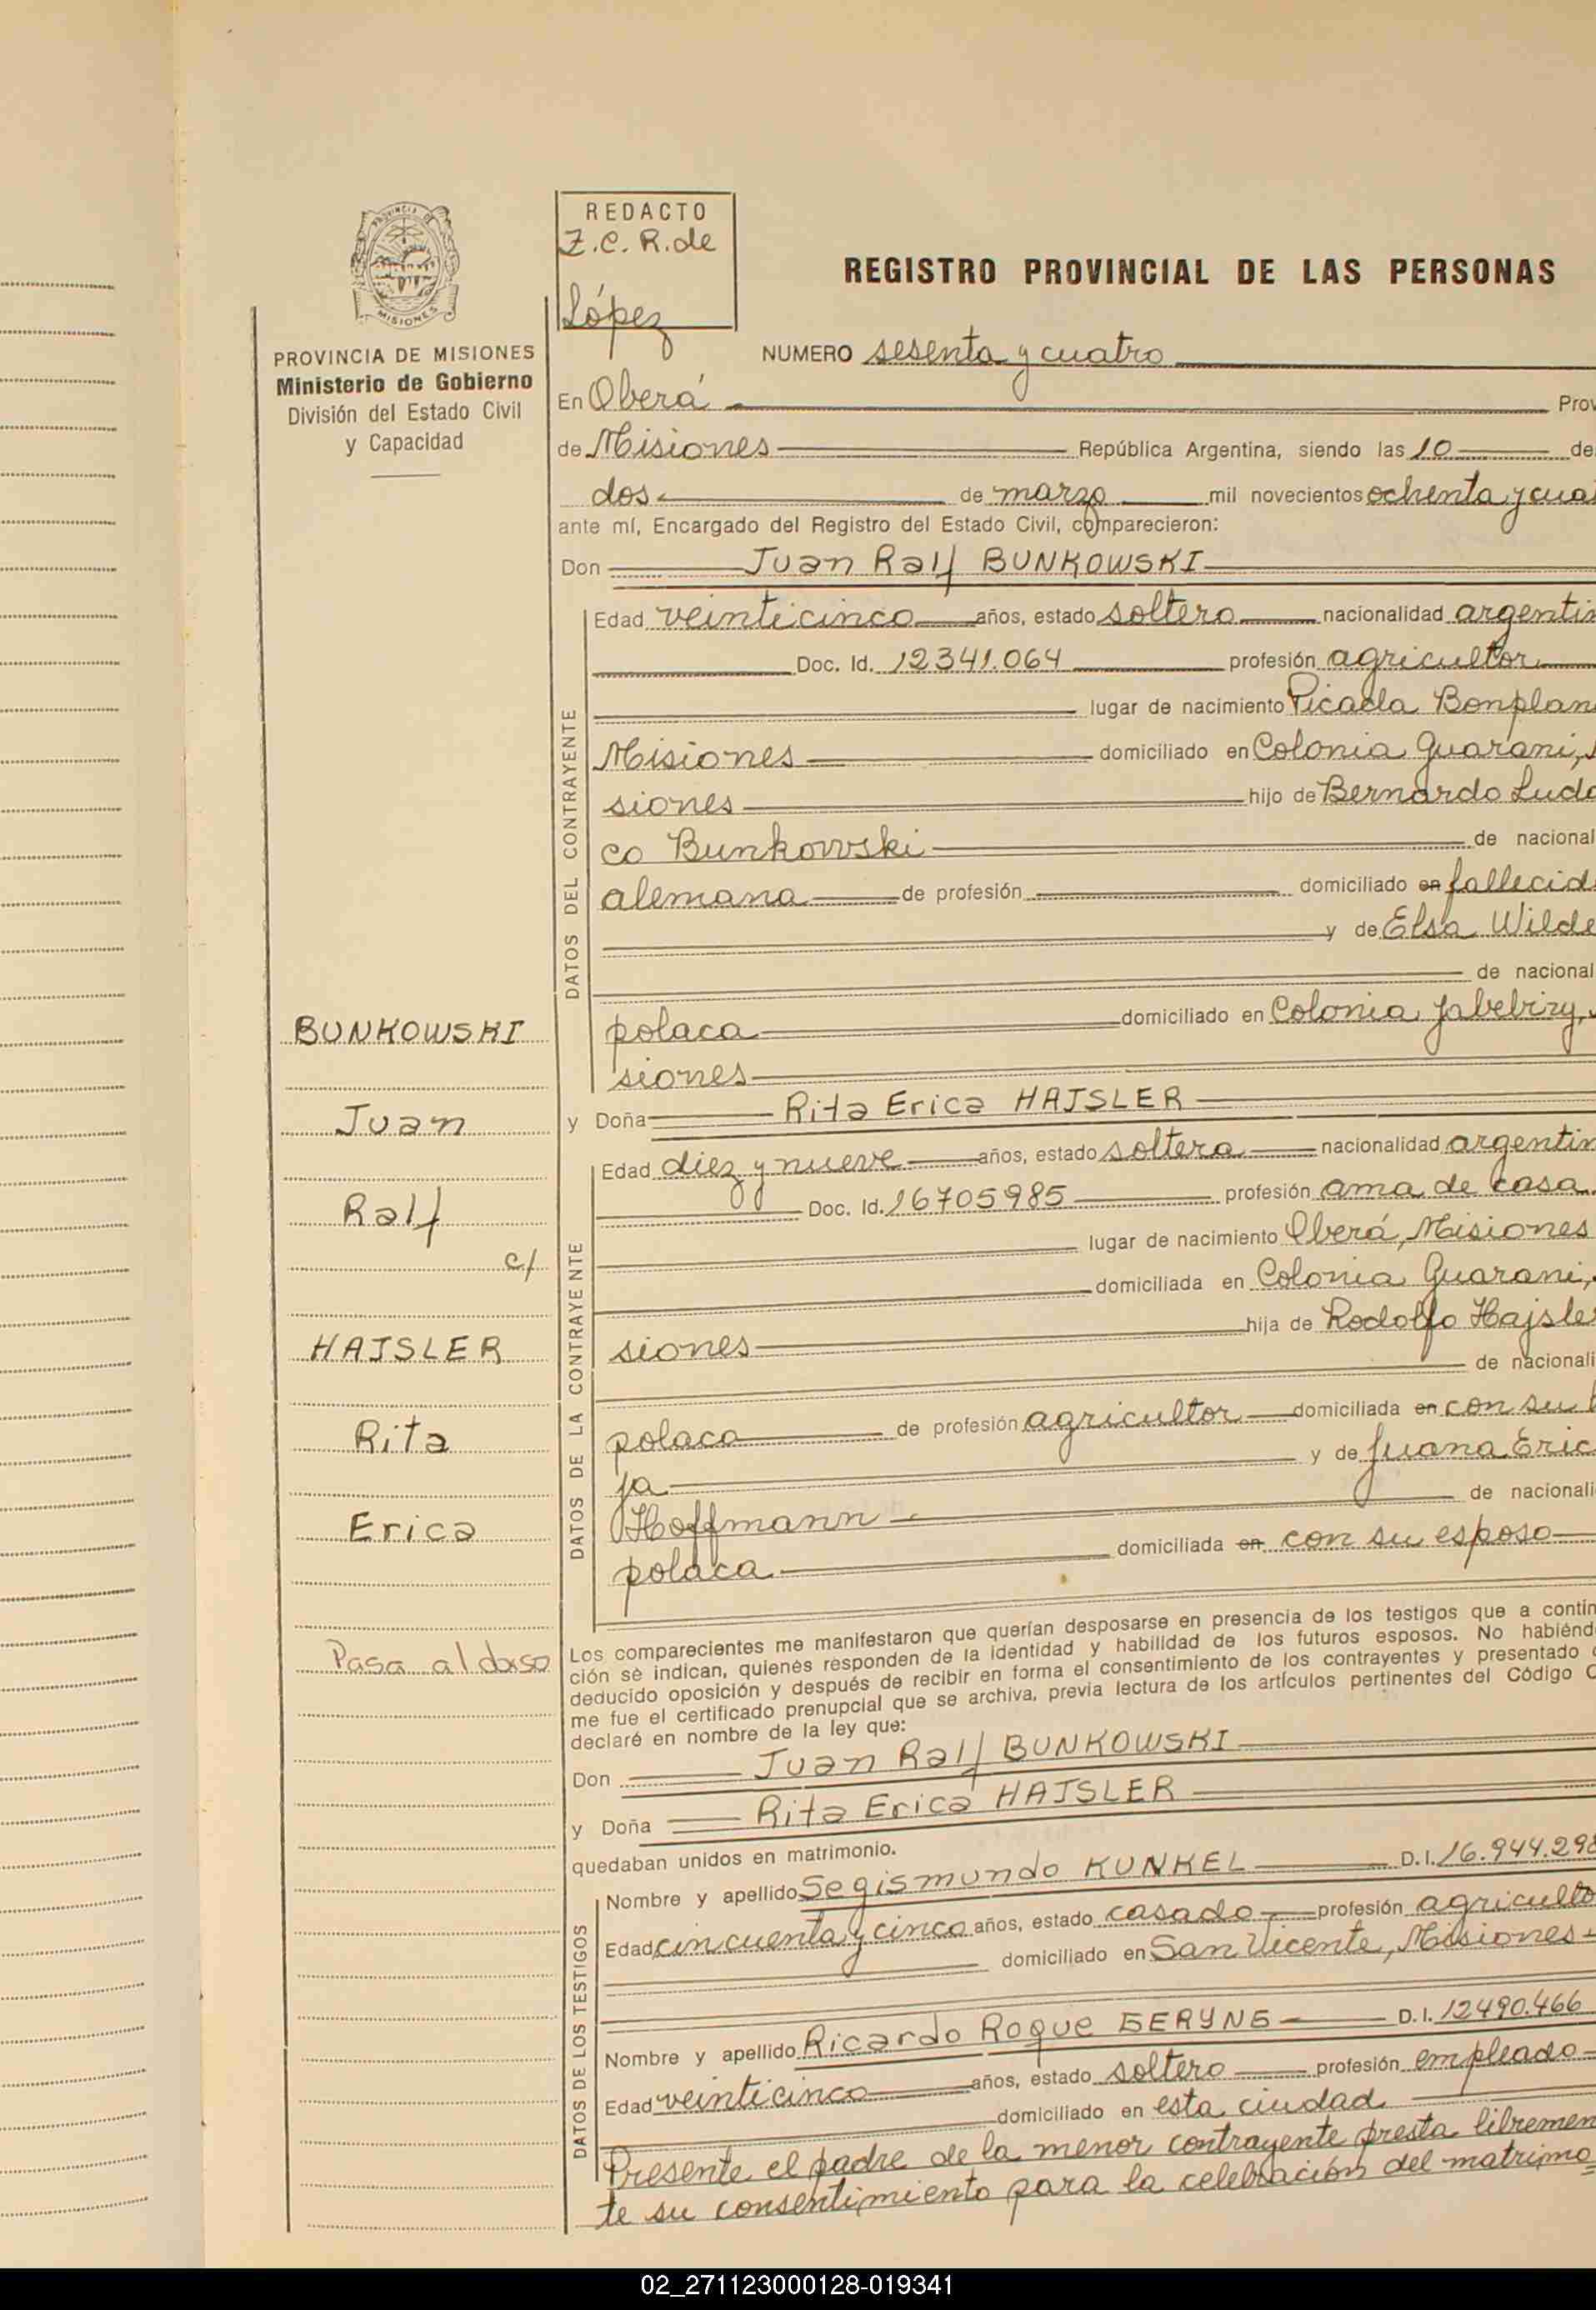 PROVINCIA DE
MISIONES
PROVINCIA DE MISIONES
Ministerio de Gobierno
División del Estado Civil
y Capacidad
REDACTO
Z.C.R. de
López
REGISTRO PROVINCIAL DE LAS PERSONAS
NUMERO sesenta y cuatro
En Oberá Prov
de Misiones República Argentina, siendo las 10 de
dos de marzo mil novecientos ochenta y cua
ante mí, Encargado del Registro del Estado Civil, comparecieron:
Don Juan Ralf BUNKOWSKI
DATOS DEL CONTRAYENTE
Edad veinticinco años, estado soltero nacionalidad argentin
Doc. Id. 12341.064 profesión agricultor
lugar de nacimiento Picada Bonplan
Misiones domiciliado en Colonia Guarani,
siones hijo de Bernardo Ludo
co Bunkowski de nacional
alemana de profesión domiciliado en fallecid
y de Elsa Wilde
de nacional
polaca domiciliado en Colonia Jabebiry,
siones
y Doña Rita Erica HAJSLER
DATOS DE LA CONTRAYENTE
Edad diez y nueve años, estado soltera nacionalidad argentin
Doc. Id. 16705985 profesión ama de casa
lugar de nacimiento Oberá, Misiones
domiciliada en Colonia Guarani,
siones hija de Rodolfo Hajsler
de nacionali
polaca de profesión agricultor domiciliada en con su h
ja y de Juana Eric
Hoffmann de nacionali
polaca domiciliada en con su esposo
BUNKOWSKI
Juan
Ralf
c/
HAJSLER
Rita
Erica
Pasa al dorso
Los comparecientes me manifestaron que querían desposarse en presencia de los testigos que a contin
ción se indican, quienes responden de la identidad y habilidad de los futuros esposos. No habiénd
deducido oposición y después de recibir en forma el consentimiento de los contrayentes y presentado
me fue el certificado prenupcial que se archiva, previa lectura de los artículos pertinentes del Código C
declaré en nombre de la ley que:
Don Juan Ralf BUNKOWSKI
y Doña Rita Erica HAJSLER
quedaban unidos en matrimonio.
DATOS DE LOS TESTIGOS
Nombre y apellido Segismundo KUNKEL D.I. 16.944.298
Edad cincuenta y cinco años, estado casado profesión agriculto
domiciliado en San Vicente, Misiones
Nombre y apellido Ricardo Roque GERYNG D.I. 12490.466
Edad veinticinco años, estado soltero profesión empleado
domiciliado en esta ciudad
Presente el padre de la menor contrayente presta libremen
te su consentimiento para la celebración del matrimo
02_271123000128-019341